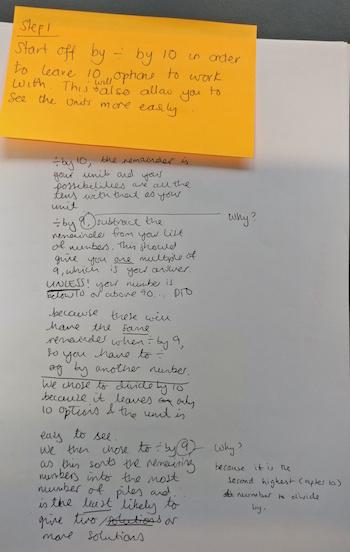 Step 1
Start off by ÷ by 10 in order
to leave 10 options to work
with. This will also allow you to
see the units more easily.
÷ by 10, the remainder is
your unit and your
possibilities are all the
tens with that as your
unit
÷ by 9, subtract the
remainder from your list
of numbers. This should
give you one multiple of
9, which is your answer.
UNLESS! your number is
below 10 or above 90... PTO
Why?
because these will
have the same
remainder when ÷ by 9,
so you have to ÷
eg by another number.
We chose to divide by 10
because it leaves only
10 options & the unit is
easy to see.
We then chose to ÷ by 9
as this sorts the remaining
numbers into the most
number of piles and
is the least likely to
give two solutions or
more solutions
Why?
because it is the
second highest (after 10)
number to divide
by.